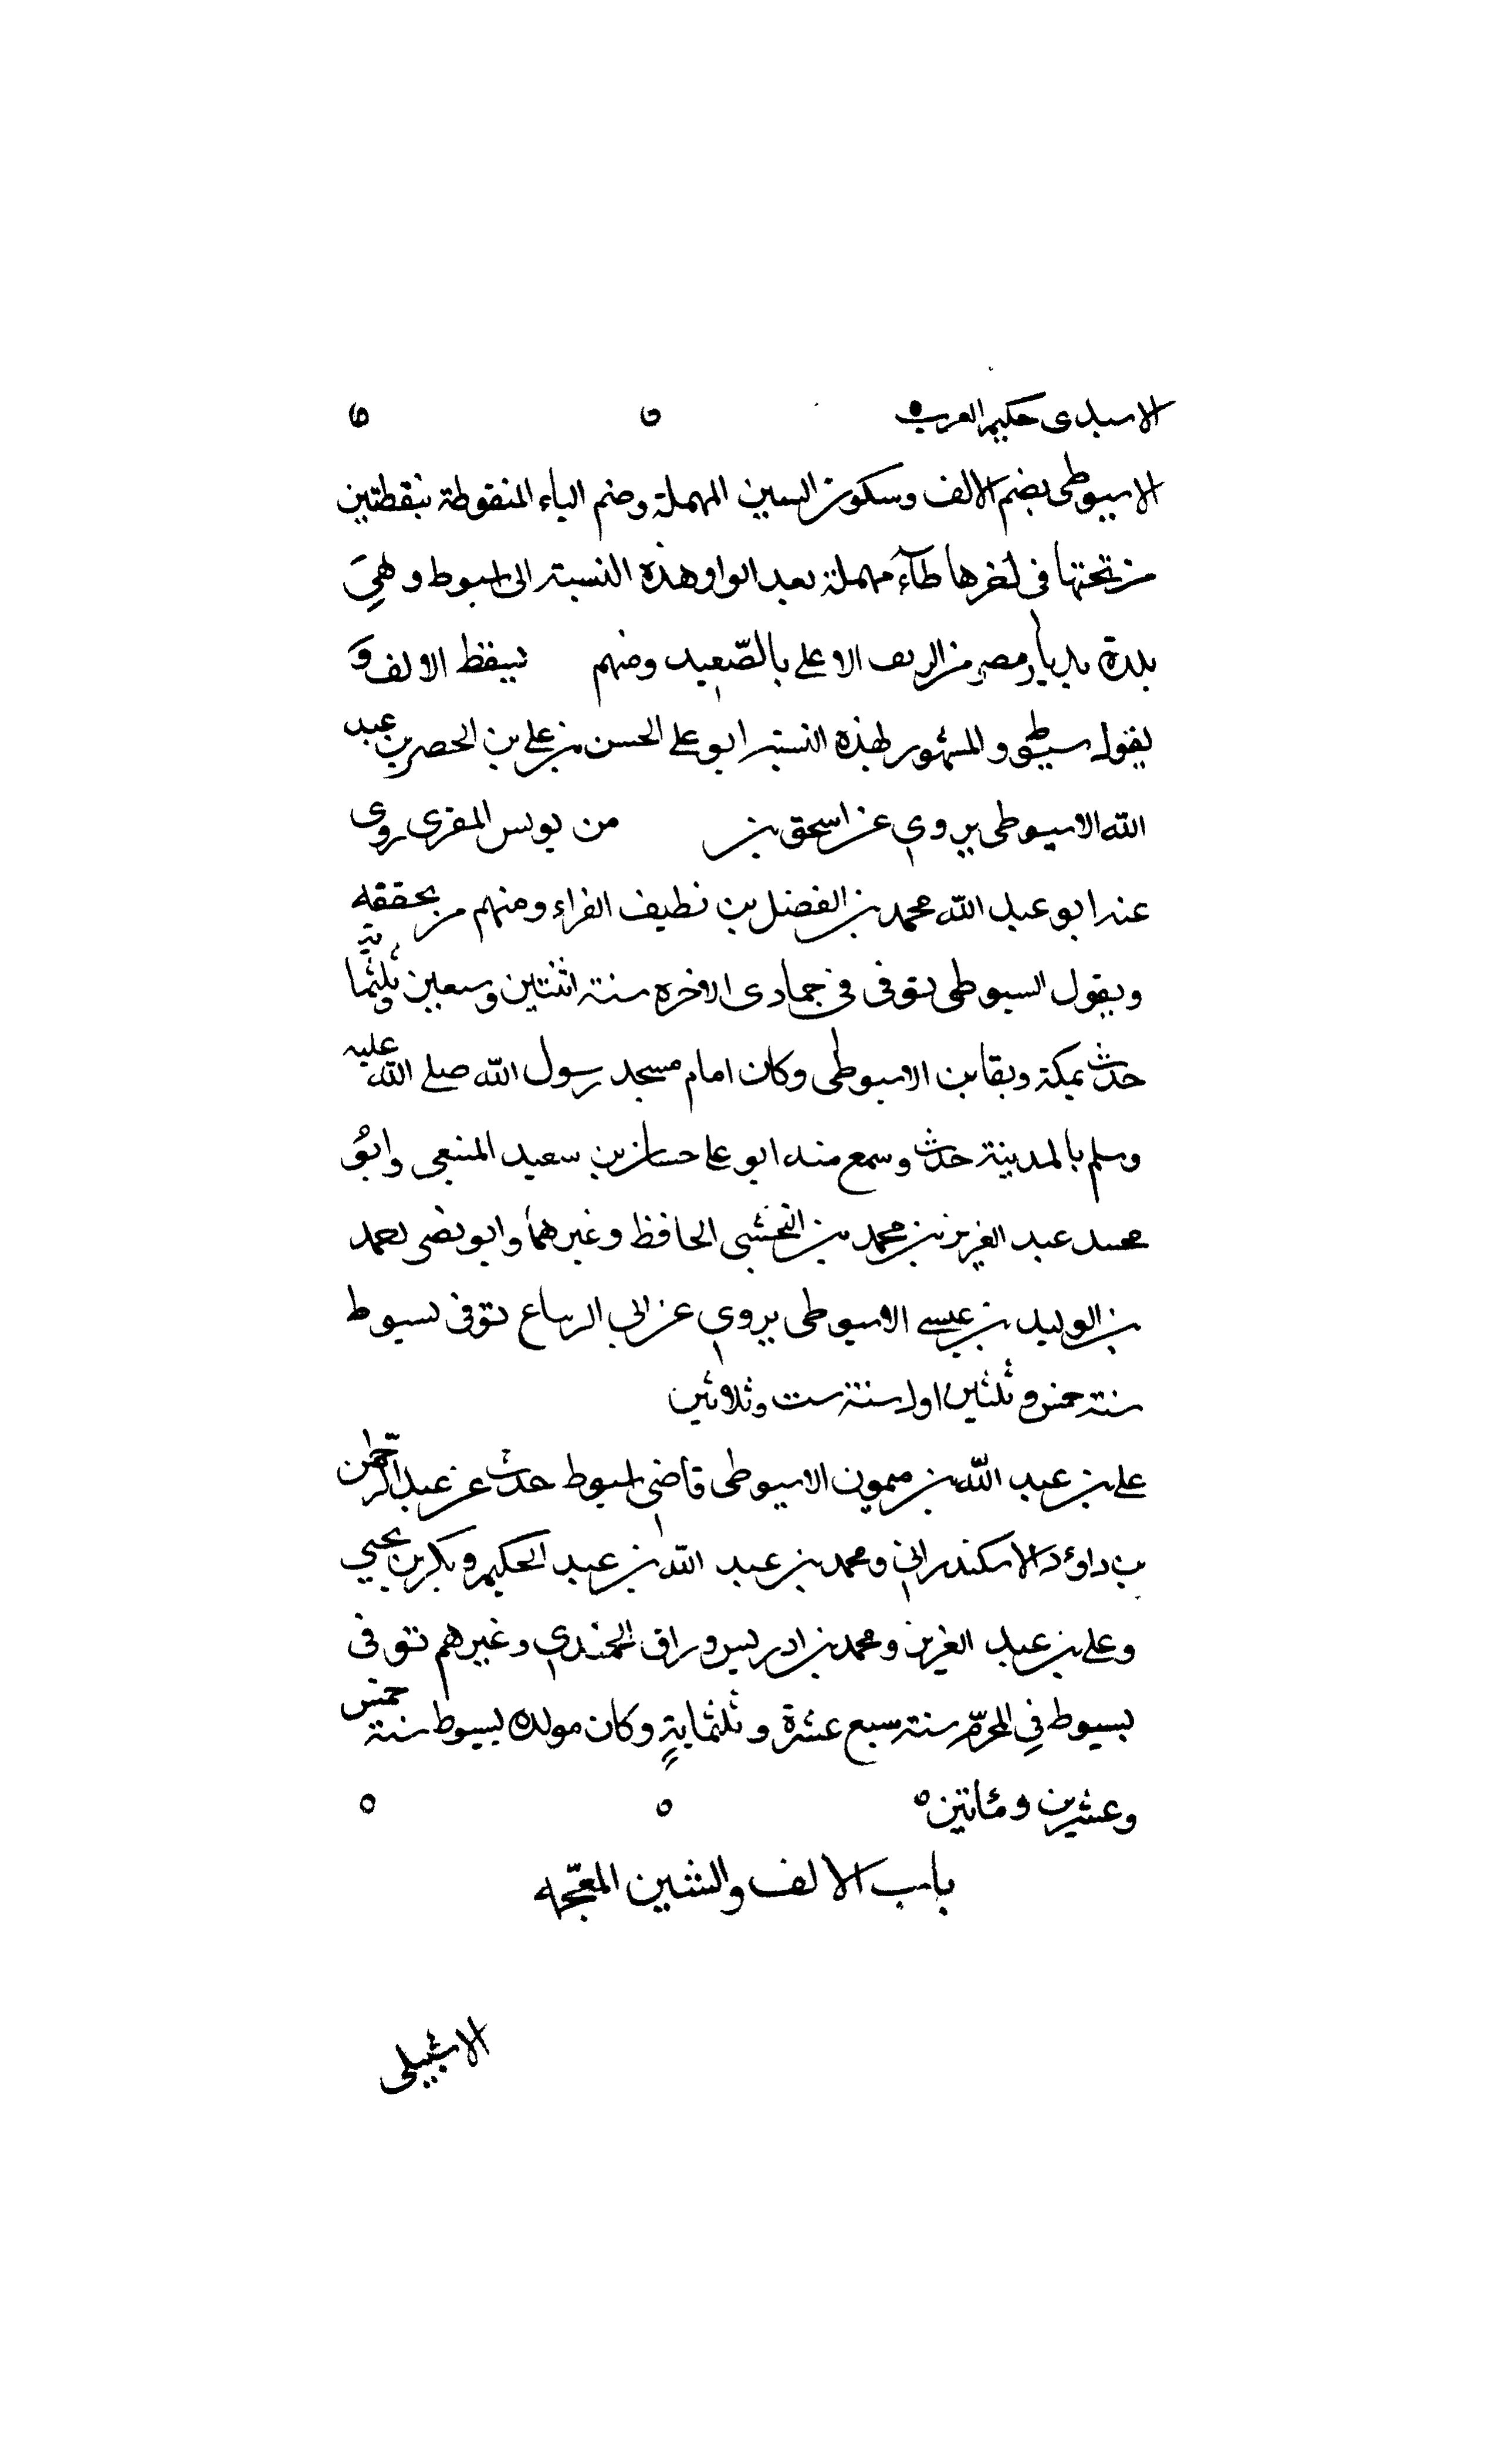 الاسيدى حكيم العرب
الاسيوطى بضم الالف وسكون السين المهملة وضم الياء المنقوطة بنقطتين
من تحتها فى آخرها طآء مهملة بعد الواو هذه النسبة الى اسيوط وهىَ
بلدة بديار مصر من الريف الاعلى بالصّعيد ومنهم يسقط الالف وَ
يقول سيوطى والمشهور بهذه النسبة ابو على الحسن بن على بن الخضر بن عبد
الله الاسيوطى يروى عن اسحق بن من يونس المقرى روى
عنه ابو عبد الله محمد بن الفضل بن نظيف الفراء ومنهم من يخففه
ويقول السيوطى توفى فى جمادى الاخره سنة اثنتين وسبعين وثلثماية
حدث بمكة وبقا بن الاسيوطى وكان امام مسجد رسول الله صلى الله عليه
وسلم بالمدينة حدث وسمع منه ابو على حسان بن سعيد المنيعى وابوُ
محمد عبد العزيز بن محمد بن النخشبى الحافظ وغيرهما وابو احمد
بن الوليد بن عيسى الاسيوطى يروى عن ابى توفى بسيوط
سنة خمس وثلثين او سنة ست وثلاثين
على بن عبد الله بن ميمون الاسيوطى قاضى اسيوط حدث عن عبد الرحمن
بن داؤد الاسكندرانى ومحمد بن عبد الله بن عبد الحكيم وبكر بن يحيى
وعلى بن عبد العزيز ومحمد بن ادريس وراق الحميدى وغيرهم توفى
بسيوط فِى المحرّم سنة سبع عشرة وثلثمايةٍ وكان مولده بسيوط سنة خمس
وعشرين ومائتين ه
باب الالف والشين المعجّمه
الاشبيلى